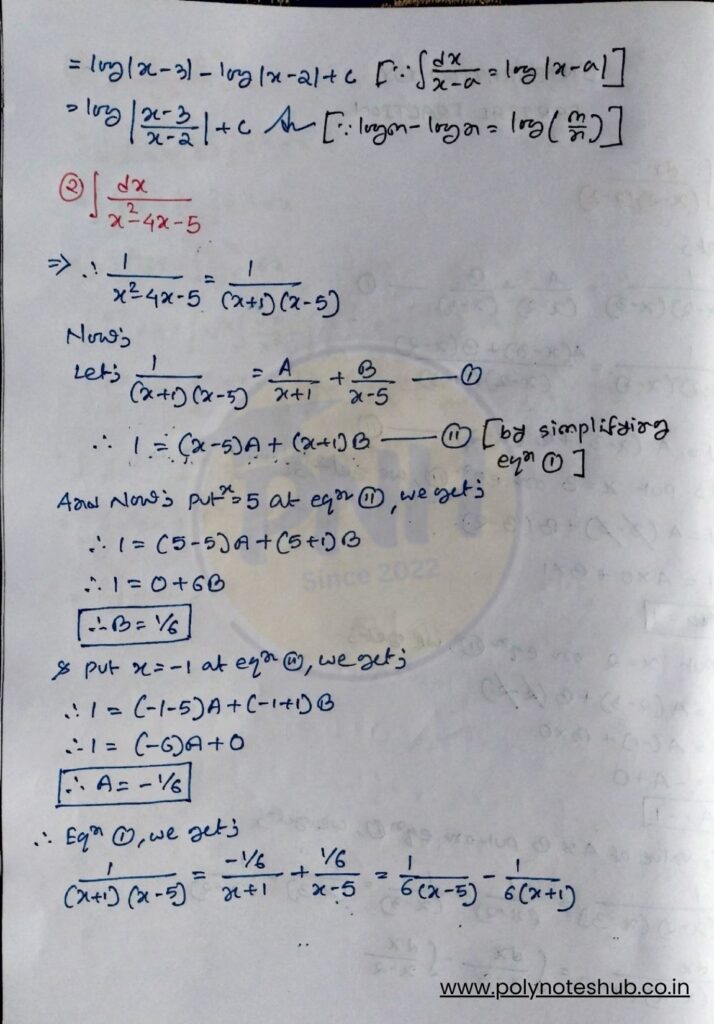 = log|x-3| - log|x-2| + c [∵ ∫ dx/(x-a) = log|x-a|]
= log |(x-3)/(x-2)| + c Ans [∵ logm - logn = log(m/n)]
② ∫ dx/(x²-4x-5)
⇒ ∴ 1/(x²-4x-5) = 1/((x+1)(x-5))
Now;
Let; 1/((x+1)(x-5)) = A/(x+1) + B/(x-5) — ①
∴ 1 = (x-5)A + (x+1)B — ⑪ [by simplifying
eqⁿ ①]
Now; put x = 5 at eqⁿ ⑪, we get;
∴ 1 = (5-5)A + (5+1)B
∴ 1 = 0 + 6B
∴ B = 1/6
& put x = -1 at eqⁿ ⑪, we get;
∴ 1 = (-1-5)A + (-1+1)B
∴ 1 = (-6)A + 0
∴ A = -1/6
∴ Eqⁿ ①, we get;
1/((x+1)(x-5)) = (-1/6)/(x+1) + (1/6)/(x-5) = 1/(6(x-5)) - 1/(6(x+1))
PNH
Since 2022
www.polynoteshub.co.in